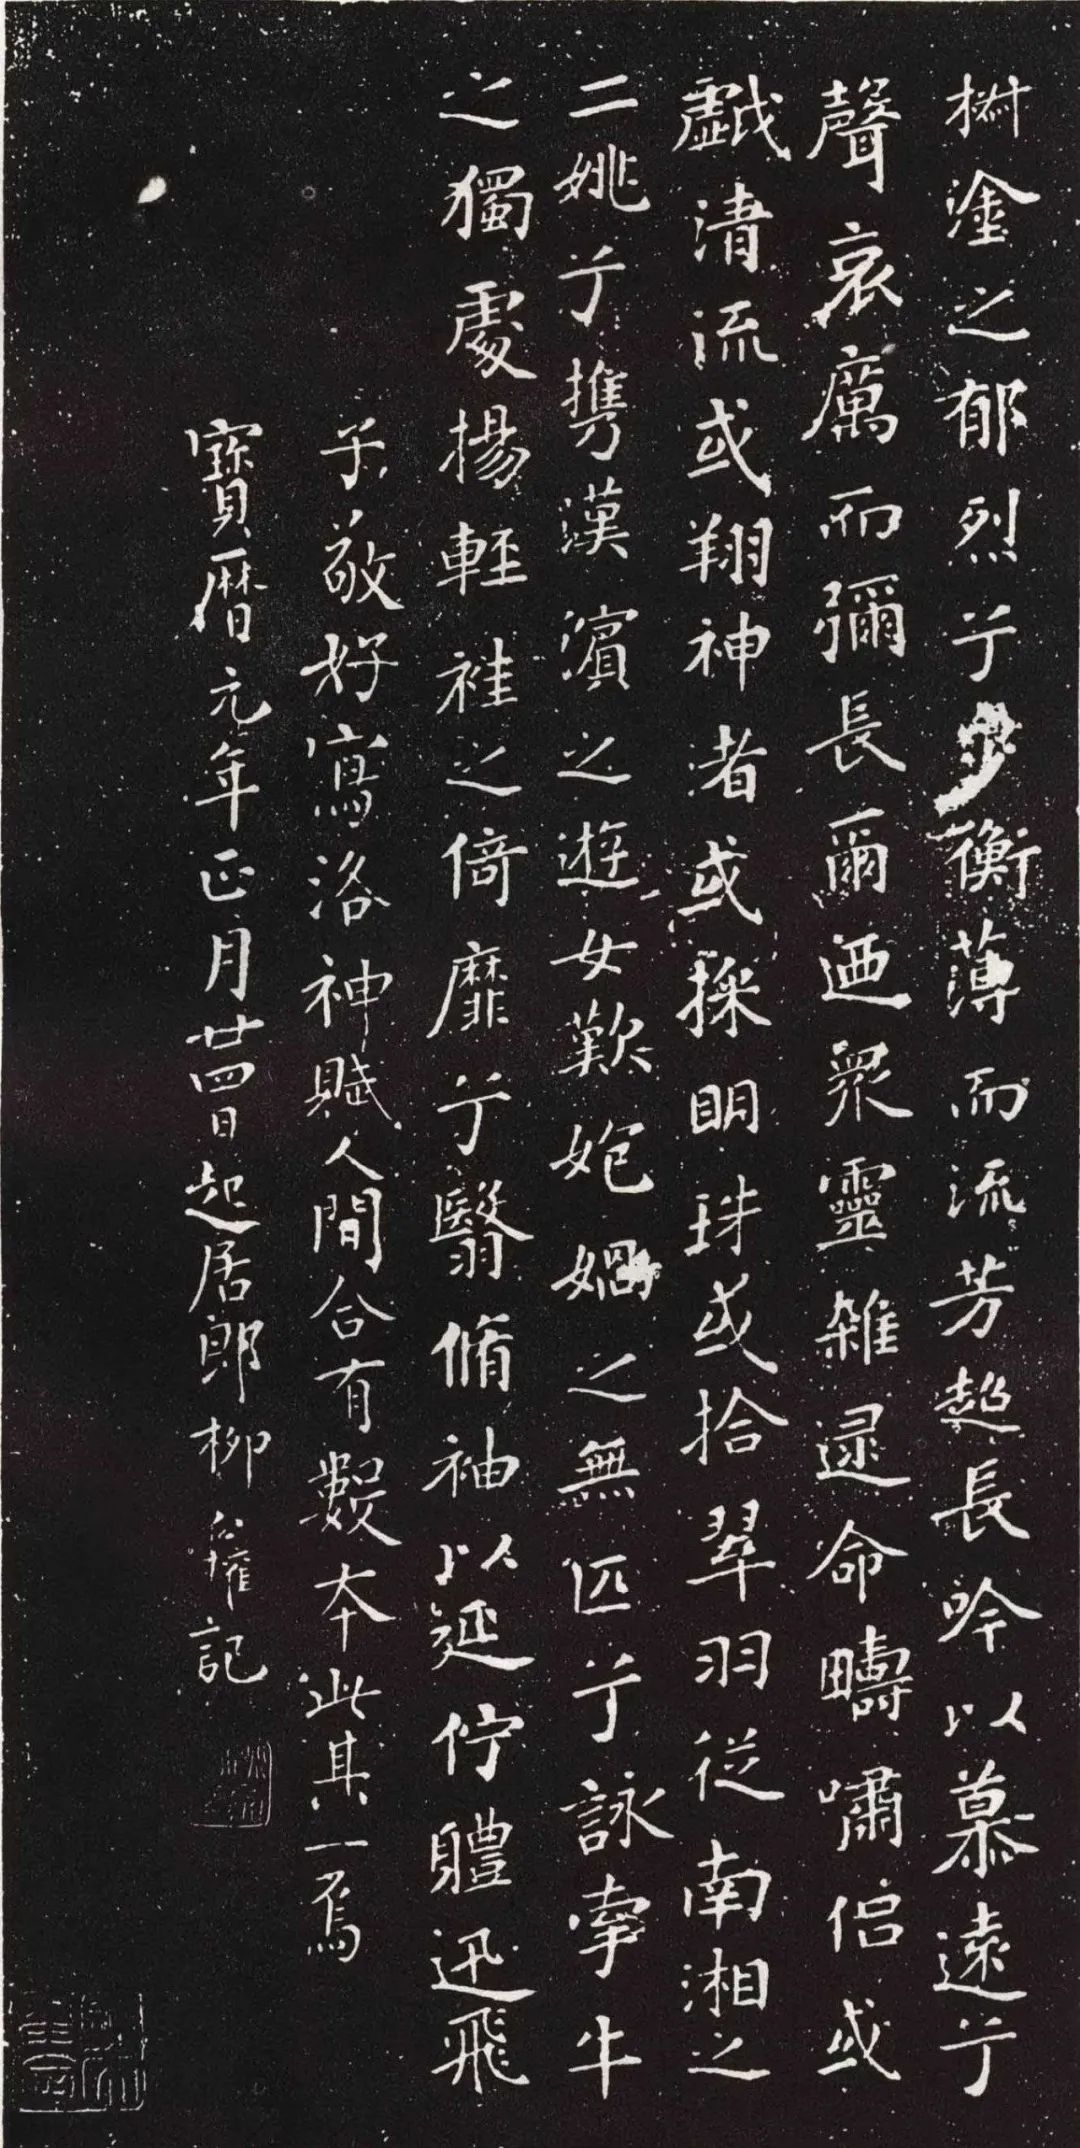 樹塗之郁烈兮步衡薄而流芳超長吟以慕遠兮
聲哀厲而彌長爾迺衆靈雜遝命疇嘯侶或
戲清流或翔神渚或採明珠或拾翠羽從南湘之
二姚兮攜漢濱之遊女歎匏媧之無匹兮詠牽牛
之獨處揚輕袿之倚靡兮翳脩袖以延佇體迅飛
子敬好寫洛神賦人間合有數本此其一焉
寶曆元年正月廿四日起居郎柳公權記